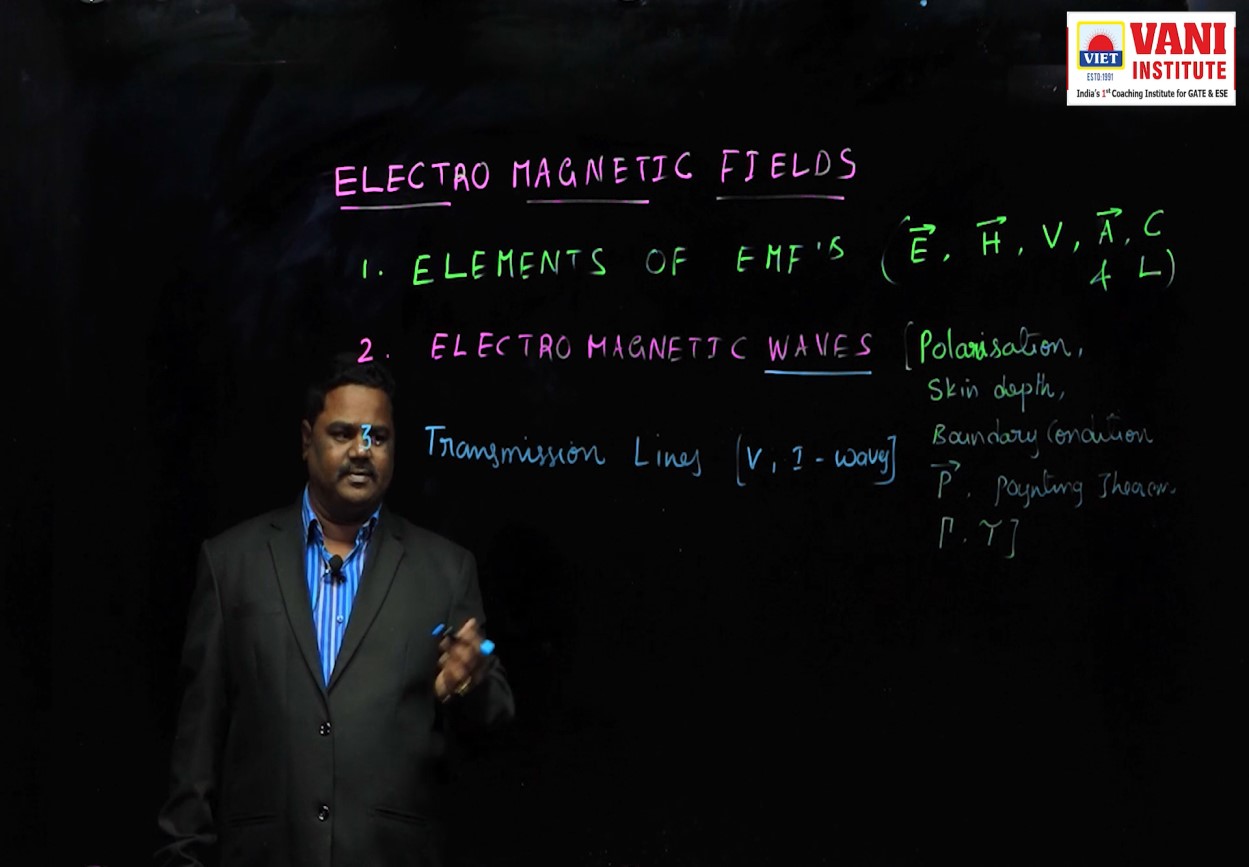 VIET
ESTD:1991
VANI
INSTITUTE
India's 1st Coaching Institute for GATE & ESE
ELECTRO MAGNETIC FIELDS
1. ELEMENTS OF EMF'S (E⃗, H⃗, V, A⃗, C
& L)
2. ELECTRO MAGNETIC WAVES [Polarisation,
Skin depth,
Boundary Condition
3 Transmission Lines [V, I - wavy]
P⃗, Poynting Theorem
Γ, T]